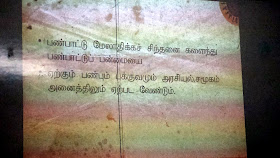 • பண்பாட்டு மேலாதிக்கச் சிந்தனை களைந்து
பண்பாட்டுப் பன்மையை
• ஏற்கும் பண்பும் பக்குவமும் அரசியல்,சமூகம்
அனைத்திலும் ஏற்பட வேண்டும்.